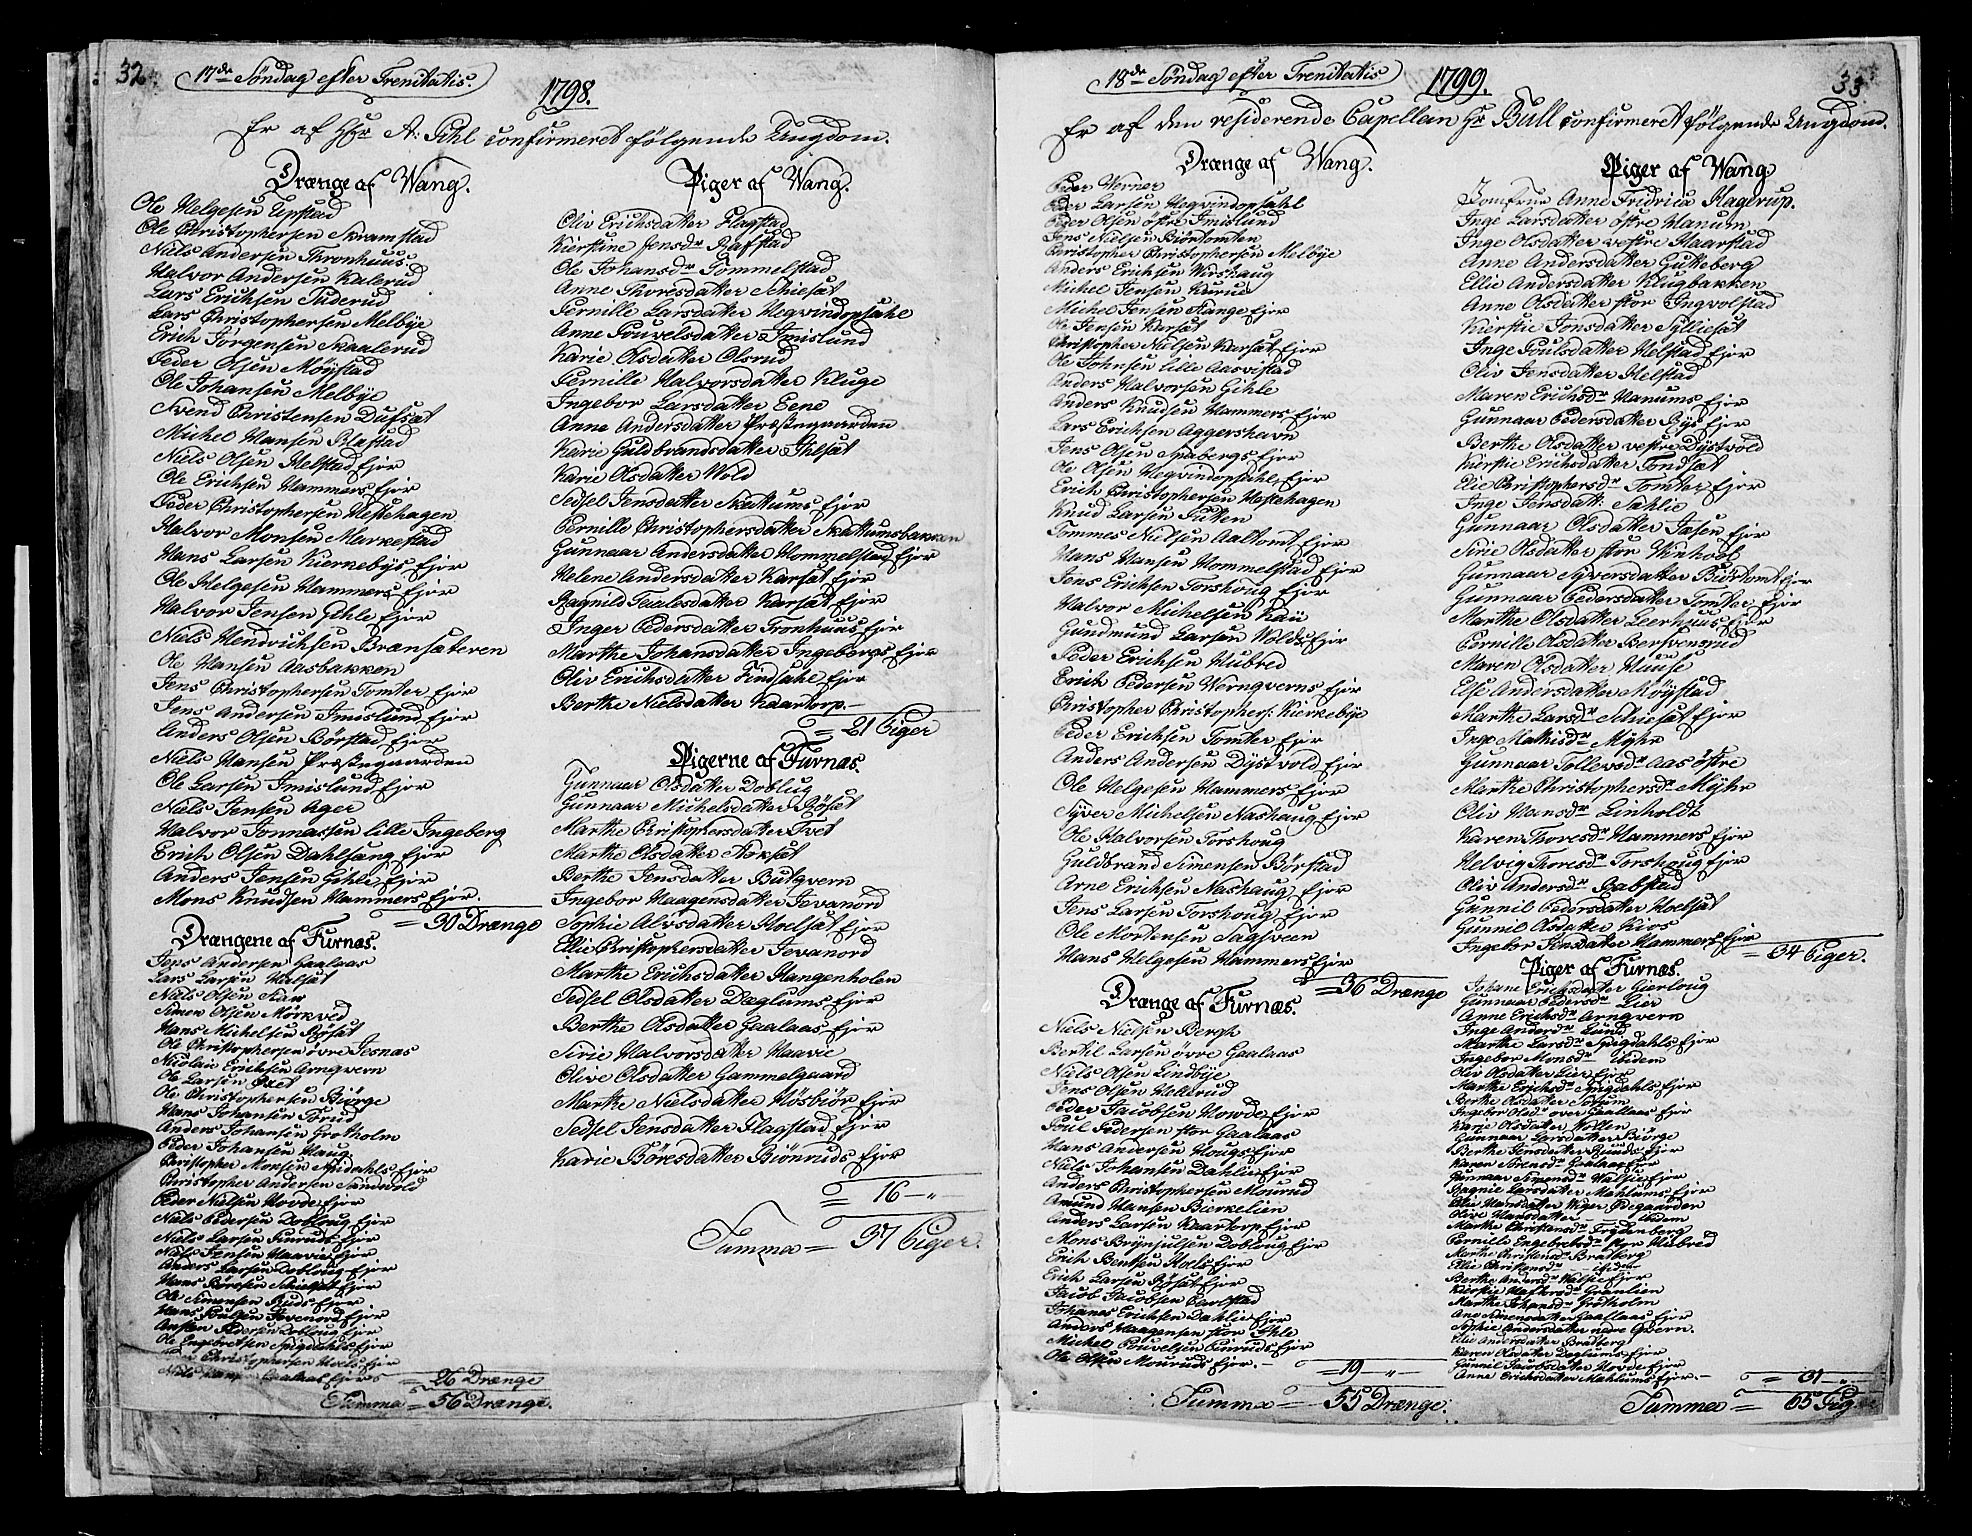 32
17de Søndag efter Trenitatis.
1798.
Er af Hr A: Pihl confirmeret følgende Ungdom.
Drænge af Wang.
Ole Helgesen Upstad
Ole Christophersen Skramstad
Niels Andersen Thronhuus
Halvor Andersen Kalerud
Lars Erichsen Suderud
Lars Christophersen Melbÿe
Erich Jørgensen Skaalerud
Peder Olsen Møÿstad
Ole Johansen Melbÿe
Svend Christensen Dufsæt
Michel Hansen Blæstad
Niels Olsen Helstad Ejer
Ole Erichsen Hammers Ejer
Peder Christophersen Heftehagen
Halvor Monsen Markestad
Hans Larsen Kiernebÿs Ejer
Ole Helgesen Hammers Ejer
Halvor Jensen Gihle Ejer
Niels Hendrichsen Brænsæteren
Ole Hansen Aasbakken
Jens Christophersen Tomter Ejer
Jens Andersen Imislund Ejer
Anders Olsen Børstad Ejer
Niels Hansen Præstegaarden
Ole Larsen Imislund Ejer
Niels Jensen Ager
Halvor Jonnassen lille Ingeberg
Erich Olsen Dahlseng Ejer
Anders Jensen Gihle Ejer
Mons Knudsen Hammers Ejer.
= 30 Drænge
Drængene af Furnæs.
Jens Andersen Gaalaas
Lars Larsen Halsæt
Niels Olsen Kaar
Simen Olsen Mørkved
Hans Michelsen Røsæt
Ole Christophersen øvre Jesnæs
Nicolai Erichsen Arnqvern
Ole Larsen Tvet
Ole Christophersen Biørge
Hans Johansen Torud
Anders Johansen Grotholm
Peder Johansen Haug
Christopher Monsen Spidahls Ejer
Christopher Andersen Sandvold
Peder Nielsen Hovde Ejer
Niels Pedersen Dobloug Ejer
Niels Larsen Finruds Ejer
Niels Jensen Haavie Ejer
Anders Larsen Dobloug Ejer
Hans Børesen Schiesæt Ejer
Ole Simensen Ruds Ejer
Hans Poulsen Jevenord Ejer
Ansten Pedersen Dobloug Ejer
Ole Engebretsen Spigdahls Ejer
Christophersen Hoels Ejer
Niels Gaalaas Ejer
= 26 Drænge
Summa = 56 Drænge.
Piger af Wang.
Oliv Erichsdatter Flagstad
Kierstine Jensdr Rafstad
Ole Johansdr Tommelstad
Anne Thoresdatter Schiesæt
Pernille Larsdatter Hegvindopsahl
Anne Pouvelsdatter Imislund
Karie Olsdatter Olsrud
Pernille Halvorsdatter Kluge
Ingebor Larsdatter Eene
Anne Andersdatter Præstegaarden
Karie Guldbrandsdatter Ihlsæt
Karie Olsdatter Wold
Sedsel Jensdatter Skattums Ejer
Pernille Christophersdatter Skattumsbakken
Gunnaar Andersdatter Hommelstad Ejer
Helene Andersdatter Karset Ejer
Ragnild Tealesdatter Karset Ejer
Inger Pedersdatter Tronhuus Ejer
Marthe Johansdatter Ingebergs Ejer
Oliv Erichsdatter Findsahl Ejer
Berthe Nielsdatter Kaartorp.
= 21 Piger
Pigerne af Furnæs.
Gunnaar Olsdatter Doblug
Gunnaar Michelsdatter Røsæt
Marthe Christophersdatter Tvet
Marthe Olsdatter Stoksæt
Berthe Jensdatter Butqvern
Ingebor Haagensdatter Jevanord
Sophie Alvsdatter Hoelsæt Ejer
Ellie Christophersdatter Jevanord
Marthe Erichsdatter Stangenholen
Sedsel Olsdatter Dæglums Ejer
Berthe Olsdatter Gaalaas Ejer
Sirie Halvorsdatter Haavie
Olive Olsdatter Gammelgaard
Marthe Nielsdatter Høsbiør Ejer
Sedsel Jensdatter Flagstad Ejer
Karie Børesdatter Biønruds Ejer
= 16 — "
Summa = 37 Piger.
33
18de Søndag efter Trenitatis
1799.
Er af den residerende Capellan Hr Bull confirmeret følgende Ungdom.
Drænge af Wang.
Peder Werner
Peder Larsen Hegvindopsahl
Peder Olsen østre Imislund
Jens Nielsen Biørtomten
Christopher Christophersen Melbÿe
Anders Erichsen Wirshaug
Michel Jensen Kurud
Michel Jensen Stange Ejer
Ole Jensen Karset
Christopher Nielsen Karset Ejer
Ole Johnsen lille Aasvistad
Anders Halvorsen Gihle
Anders Knudsen Hammers Ejer
Lars Erichsen Aggershavn
Jens Olsen Spabergs Ejer
Ole Olsen Hegvindopsahls Ejer
Erich Christophersen Heftehagen
Knud Larsen Sæten
Tommes Nielsen Aaltomt Ejer
Hans Hansen Hommelstad Ejer
Jens Erichsen Torshoug Ejer
Halvor Michelsen Kaü
Gundmund Larsen Wolds Ejer
Peder Erichsen Hubred
Erich Pedersen Wernqverns Ejer
Christopher Christophers: Kierkebÿe
Peder Erichsen Tomter Ejer
Anders Andersen Dÿstvold Ejer
Ole Helgesen Hammers Ejer
Sÿver Michelsen Nashaug Ejer
Ole Halvorsen Torshoug
Guldbrand Simensen Børstad
Arne Erichsen Nashaug Ejer
Jens Larsen Torshoug Ejer
Ole Mortensen Sagsveen
Hans Helgesen Hammers Ejer
= 36 Drænge
Drænge af Furnæs.
Niels Nielsen Bergh
Bertil Larsen øvre Gaalaas
Niels Olsen Lindbÿe
Jens Olsen Hellerud
Peder Jacobsen Hovde Ejer
Poul Pedersen stor Gaalaas
Hans Andersen Hougs Ejer
Niels Johansen Dahlie Ejer
Anders Christophersen Mourud
Amund Hansen Bierkelien
Anders Larsen Kaartorp Ejer
Mons Brÿnjulsen Dobloug Ejer
Erich Bentsen Hoels Ejer
Erich Larsen Røsæt Ejer
Jacob Jacobsen Carlstad
Johanes Erichsen Dahlie Ejer
Anders Haagensen stor Ihle
Michel Pouvelsen Finruds Ejer
Ole Olsen Mouruds Ejer.
= 19 — "
Summa = 55 Drænge.
Piger af Wang
Jomfrue Anne Fridrica Hagerup.
Inge Larsdatter østre Hanum
Inge Olsdatter vestre Haarstad
Anne Andersdatter Gutteberg
Ellie Andersdatter Klugbakken
Anne Olsdatter stor Ingvolstad
Kierstie Jonsdatter Sÿlliesæt
Inge Poulsdatter Helstad Ejer
Oliv Jensdatter Helstad
Maren Erichsdr Hanums Ejer
Gunnaar Pedersdatter Rÿs Ejer
Berthe Olsdatter vestre Dÿstvold
Kierstie Erichsdatter Tondsæt
Elie Christophersdr Tomter Ejer
Inge Jensdatt: Sahlie
Gunnaar Olsdatter Jøsen Ejer
Sirie Olsdatter stor Finhoel
Gunnaar Sÿversdatter Biørtomt Ejer
Gunnaar Pedersdatter Tomter Ejer
Marthe Olsdatter Leerhuus Ejer
Pernille Olsdatter Bersvensrud
Maren Olsdatter Huuse
Else Andersdatter Møÿstad
Marthe Larsdr Schiesæt Ejer
Inge Mathisdr Mÿhr
Gunnaar Tollevsdr Aas østre
Marthe Christophersdr Mÿhr
Oliv Hansdr Linholdt
Karen Thoresdr Hammers Ejer
Helvig Thoresdr Torshoug Ejer
Oliv Andersdr Rabstad
Gunnil Pedersdatter Hoelsæt
Gunnil Olsdatter Kios
Ingebor Jensdatter Hammers Ejer
= 34 Piger.
Piger af Furnæs.
Johane Erichsdatter Gierloug
Gunnaar Pedersdr Lier
Anne Erichsdr Arnqvern
Inge Andersdr Lund
Marthe Larsdr Spigdahls Ejer
Ingebor Monsdr ibidem
Oliv Olsdatter Lier Ejer
Marthe Erichsdr Spigdahls Ejer
Berthe Olsdatter Torum
Ingebor Olsdr over Gaallaas Ejer
Karie Olsdatter Kollen
Gunnaar Larsdatter Biørge
Berthe Jensdatter Ruuds Ejer
Karen Arensdr Gaalaas Ejer
Gunnaar Simensdr Halsie Ejer
Ragnie Larsdatter Mahlums Ejer
Ellie Hansdatter Wiger Ødegaarden
Olive Hansdatter ibidem
Marthe Christensdr Frÿdenberg
Pernille Engebretsdr Hubred
Marthe Christensdr Bradberg
Elie Christensdr ibidem
Berthe Andersdr Halsie Ejer
Kierstie Hafkrodr Granlien
Marthe Johansdr Grotholm
Ane Simensdatter Gaallaas Ejer
Sophie Andersdatter nere Qvern.
Ellie Andersdatter Bradberg
Karen Olsdatter Deglums Ejer
Gunnil Jacobsdatter Hovde Ejer
Anne Erichsdatter Mahlums Ejer.
= 31 — "
Summa = 65 Pig